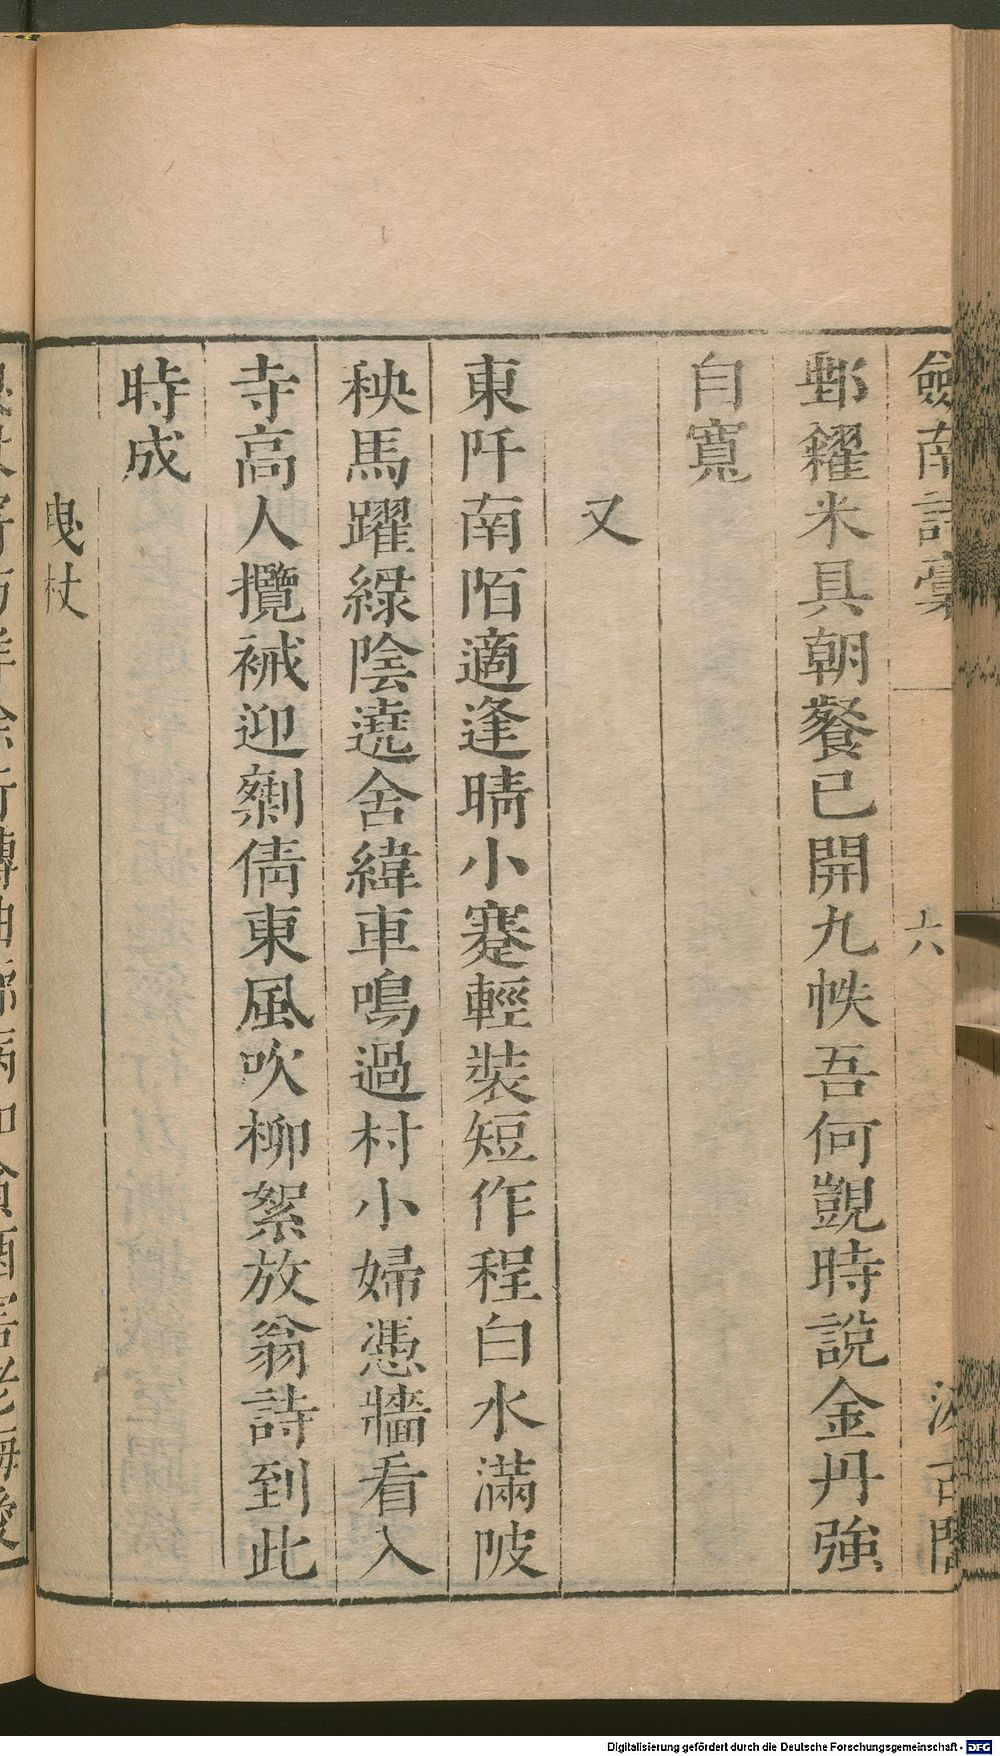 劔南詩稾
六
汲古閣
鄴糴米具朝餐已開九帙吾何覬時說金丹強
自寬
又
東阡南陌適逢晴小蹇輕裝短作程白水滿陂
秧馬躍綠陰遶舍緯車鳴過村小婦憑牆看入
寺高人攬祴迎剩倩東風吹柳絮放翁詩到此
時成
曳杖
Digitalisierung gefördert durch die Deutsche Forschungsgemeinschaft - DFG